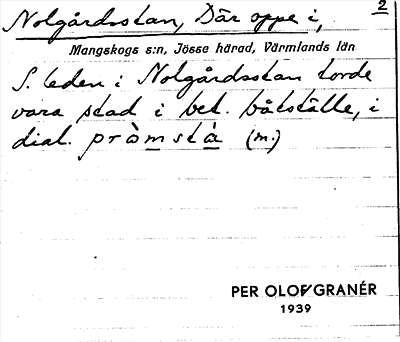 Nolgårdsstan, Där oppe i, 2
Mangskogs s:n, Jösse härad, Värmlands län
S. leden i Nolgårdsstan torde
vara stad i bet. båtställe, i
dial. pròmstà (m.)
PER OLOF GRANÉR
1939